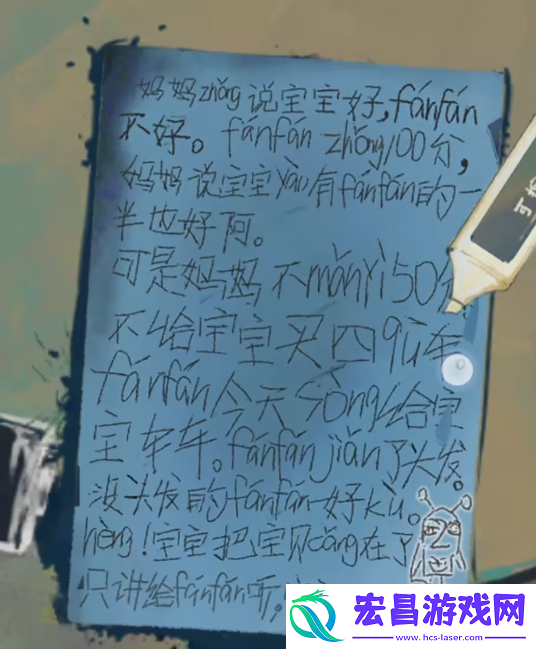 妈妈zhǒng说宝宝好,fánfán
不好。fánfán zhǒng100分,
妈妈说宝宝yào有fánfán的一
半也好阿。
可是妈妈不mǎnyì50分
不给宝宝买四qū车
fánfán今天sòng给宝
宝车车。fánfán jiǎn了头发。
没头发的fánfán好kù。
hèng!宝宝把宝贝cáng在了
只讲给fánfán听。
宏昌游戏网
www.hcs-laser.com